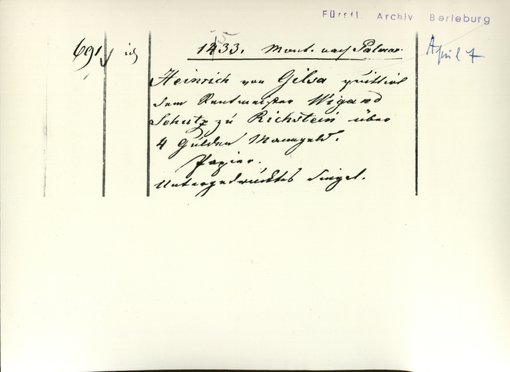 Fürstl. Archiv Berleburg
691
1533. Mont. nach Palmar.
April 7
Heinrich von Gilsa quittirt
dem Rentmeister Wigand
Schütz zu Richstein über
4 Gulden Manngeld.
Papier.
Untergedrücktes Siegel.